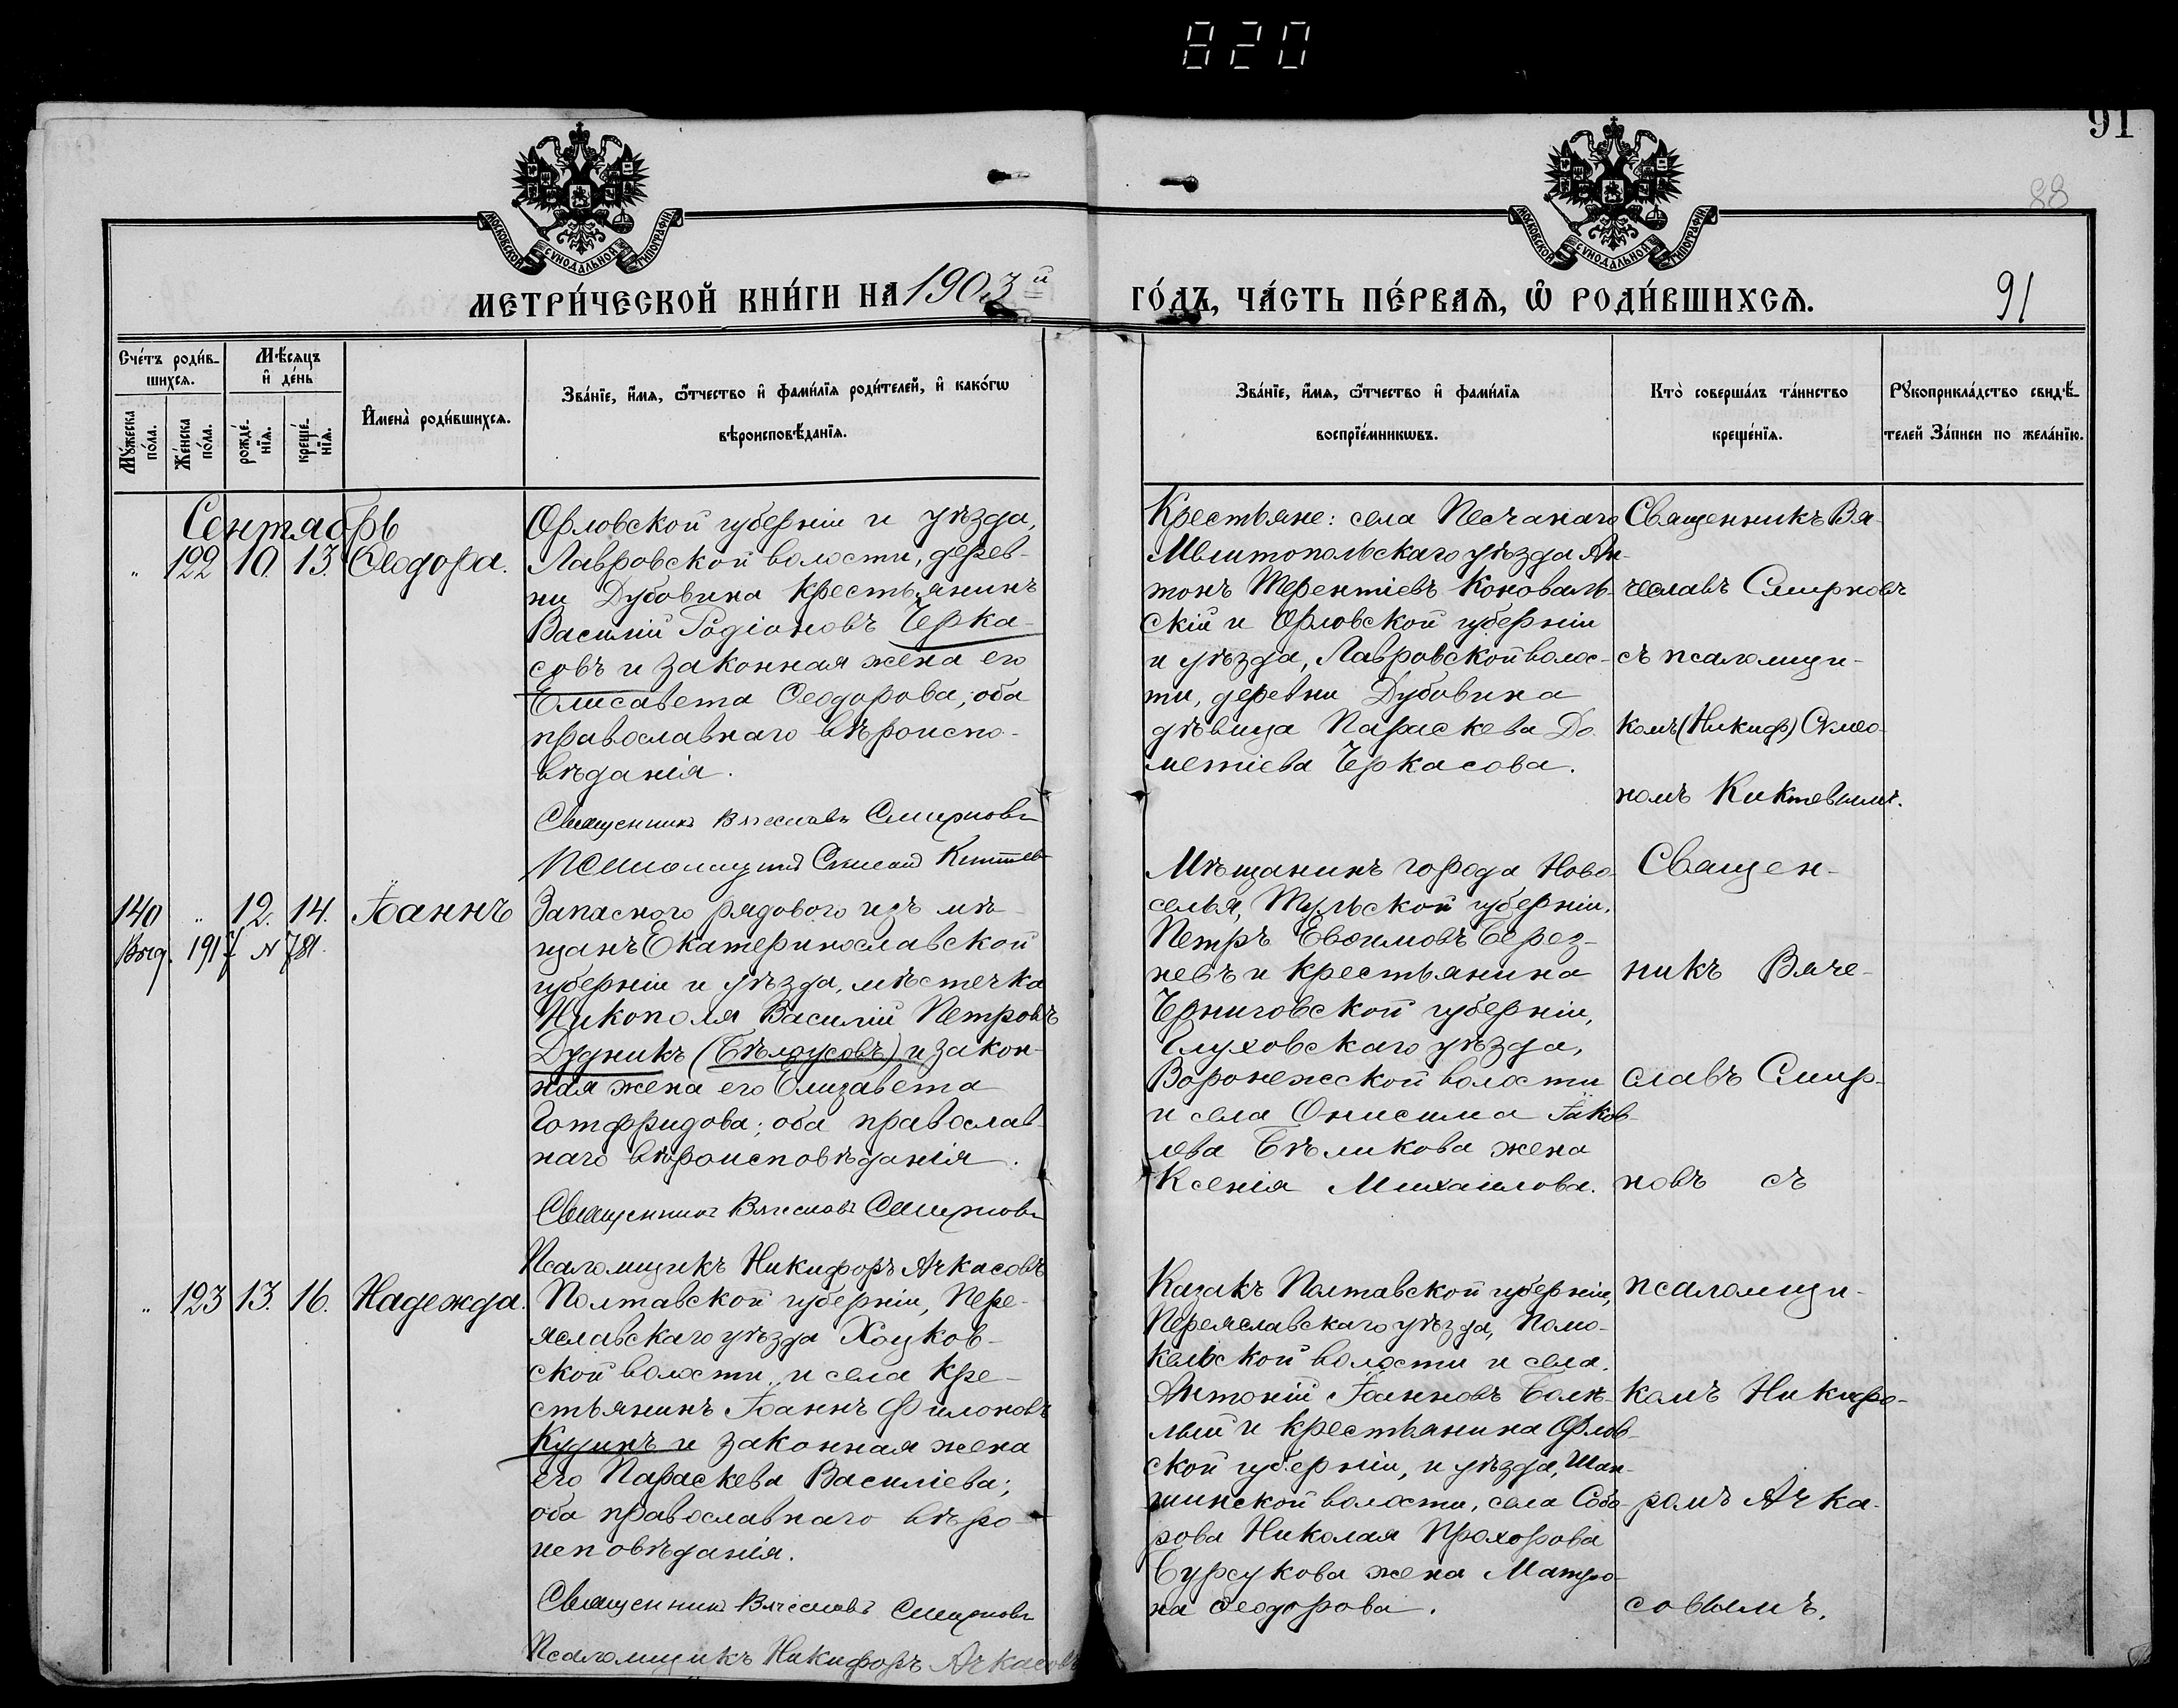 820
91
88
МОСКОВСКОЙ СѴНОДАЛЬНОЙ ТИПОГРАФІИ
МОСКОВСКОЙ СѴНОДАЛЬНОЙ ТИПОГРАФІИ
МЕТРИ́ЧЕСКОЙ КНИ́ГИ НА 1903й
ГО́ДЪ, ЧА́СТЬ ПЕ́РВАЯ, Ѡ РОДИ́ВШИХСЯ.
91
Сче́тъ роди́в-
шихся.
Мѣ́сяцъ
и де́нь
Му́жеска
по́ла.
Же́нска
по́ла.
рожде́-
нїя.
креще́-
нїя.
Имена̀ роди́вшихся.
Зва́нїе, и́мя, ѻ́тчество и фами́лїя роди́телей, и како́гѡ
вѣроисповѣ́данїя.
Зва́нїе, и́мя, ѻ́тчество и фами́лїя
воспрїе́мникѡвъ.
Кто̀ соверша́лъ та́инство
креще́нїя.
Рꙋкоприкла́дство свидѣ́-
телей За́писи по жела́нїю.
Сентябрь
" 122 10. 13. Ѳеодора.
Орловской губерніи и уѣзда,
Лавровской волости, дерев-
ни Дубовика крестьянинъ
Василій Родіоновъ Черка-
совъ и законная жена его
Елисавета Ѳеодорова, оба
православнаго вѣроиспо-
вѣданія.
Священникъ Вячеславъ Смирновъ
Псаломщикъ Симеонъ Киктевъ
Крестьяне: села Песчанаго
Мелитопольскаго уѣзда Ан-
тонъ Терентіевъ Коноваль-
скій и Орловской губерніи
и уѣзда, Лавровской волос-
ти, деревни Дубовика
дѣвица Параскева До-
метіева Черкасова.
Священникъ Вя-
чеславъ Смирновъ
съ псаломщи-
комъ (Никиф) Симео-
номъ Киктевымъ.
140 " 12. 14. Іоаннъ
Выд. 1917 N 781.
Запаснаго рядового изъ мѣ-
щанъ Екатеринославской
губерніи и уѣзда, мѣстечка
Никополя Василій Петровъ
Дудникъ (Бѣлоусовъ) и закон-
ная жена его Елизавета
Готфридова; оба православ-
наго вѣроисповѣданія.
Священникъ Вячеславъ Смирновъ
Псаломщикъ Никифоръ Ачкасовъ
Мѣщанинъ города Ново-
селья, Тульской губерніи,
Петръ Евѳимовъ Берез-
невъ и крестьянина
Черниговской губерніи,
Глуховскаго уѣзда,
Воронежской волости
и села Онисима Іаков-
лева Бѣликова жена
Ксенія Михаилова.
Священ-
никъ Вяче-
славъ Смир-
новъ съ
псаломщи-
комъ Никифо-
ромъ Ачка-
совымъ.
" 123 13. 16. Надежда.
Полтавской губерніи, Пере-
яславскаго уѣзда Хоцков-
ской волости, и села кре-
стьянинъ Іоаннъ Филоновъ
Кудинъ и законная жена
его Параскева Василіева;
оба православнаго вѣро-
исповѣданія.
Священникъ Вячеславъ Смирновъ
Псаломщикъ Никифоръ Ачкасовъ
Казакъ Полтавской губерніи,
Переяславскаго уѣзда, Помо-
кельской волости и села.
Антоній Іоанновъ Бѣлѣ-
лый и крестьянина Орлов-
ской губерніи, и уѣзда,
волости, села
Николая Прохорова
Бурсукова жена Матро-
на Ѳеодорова.